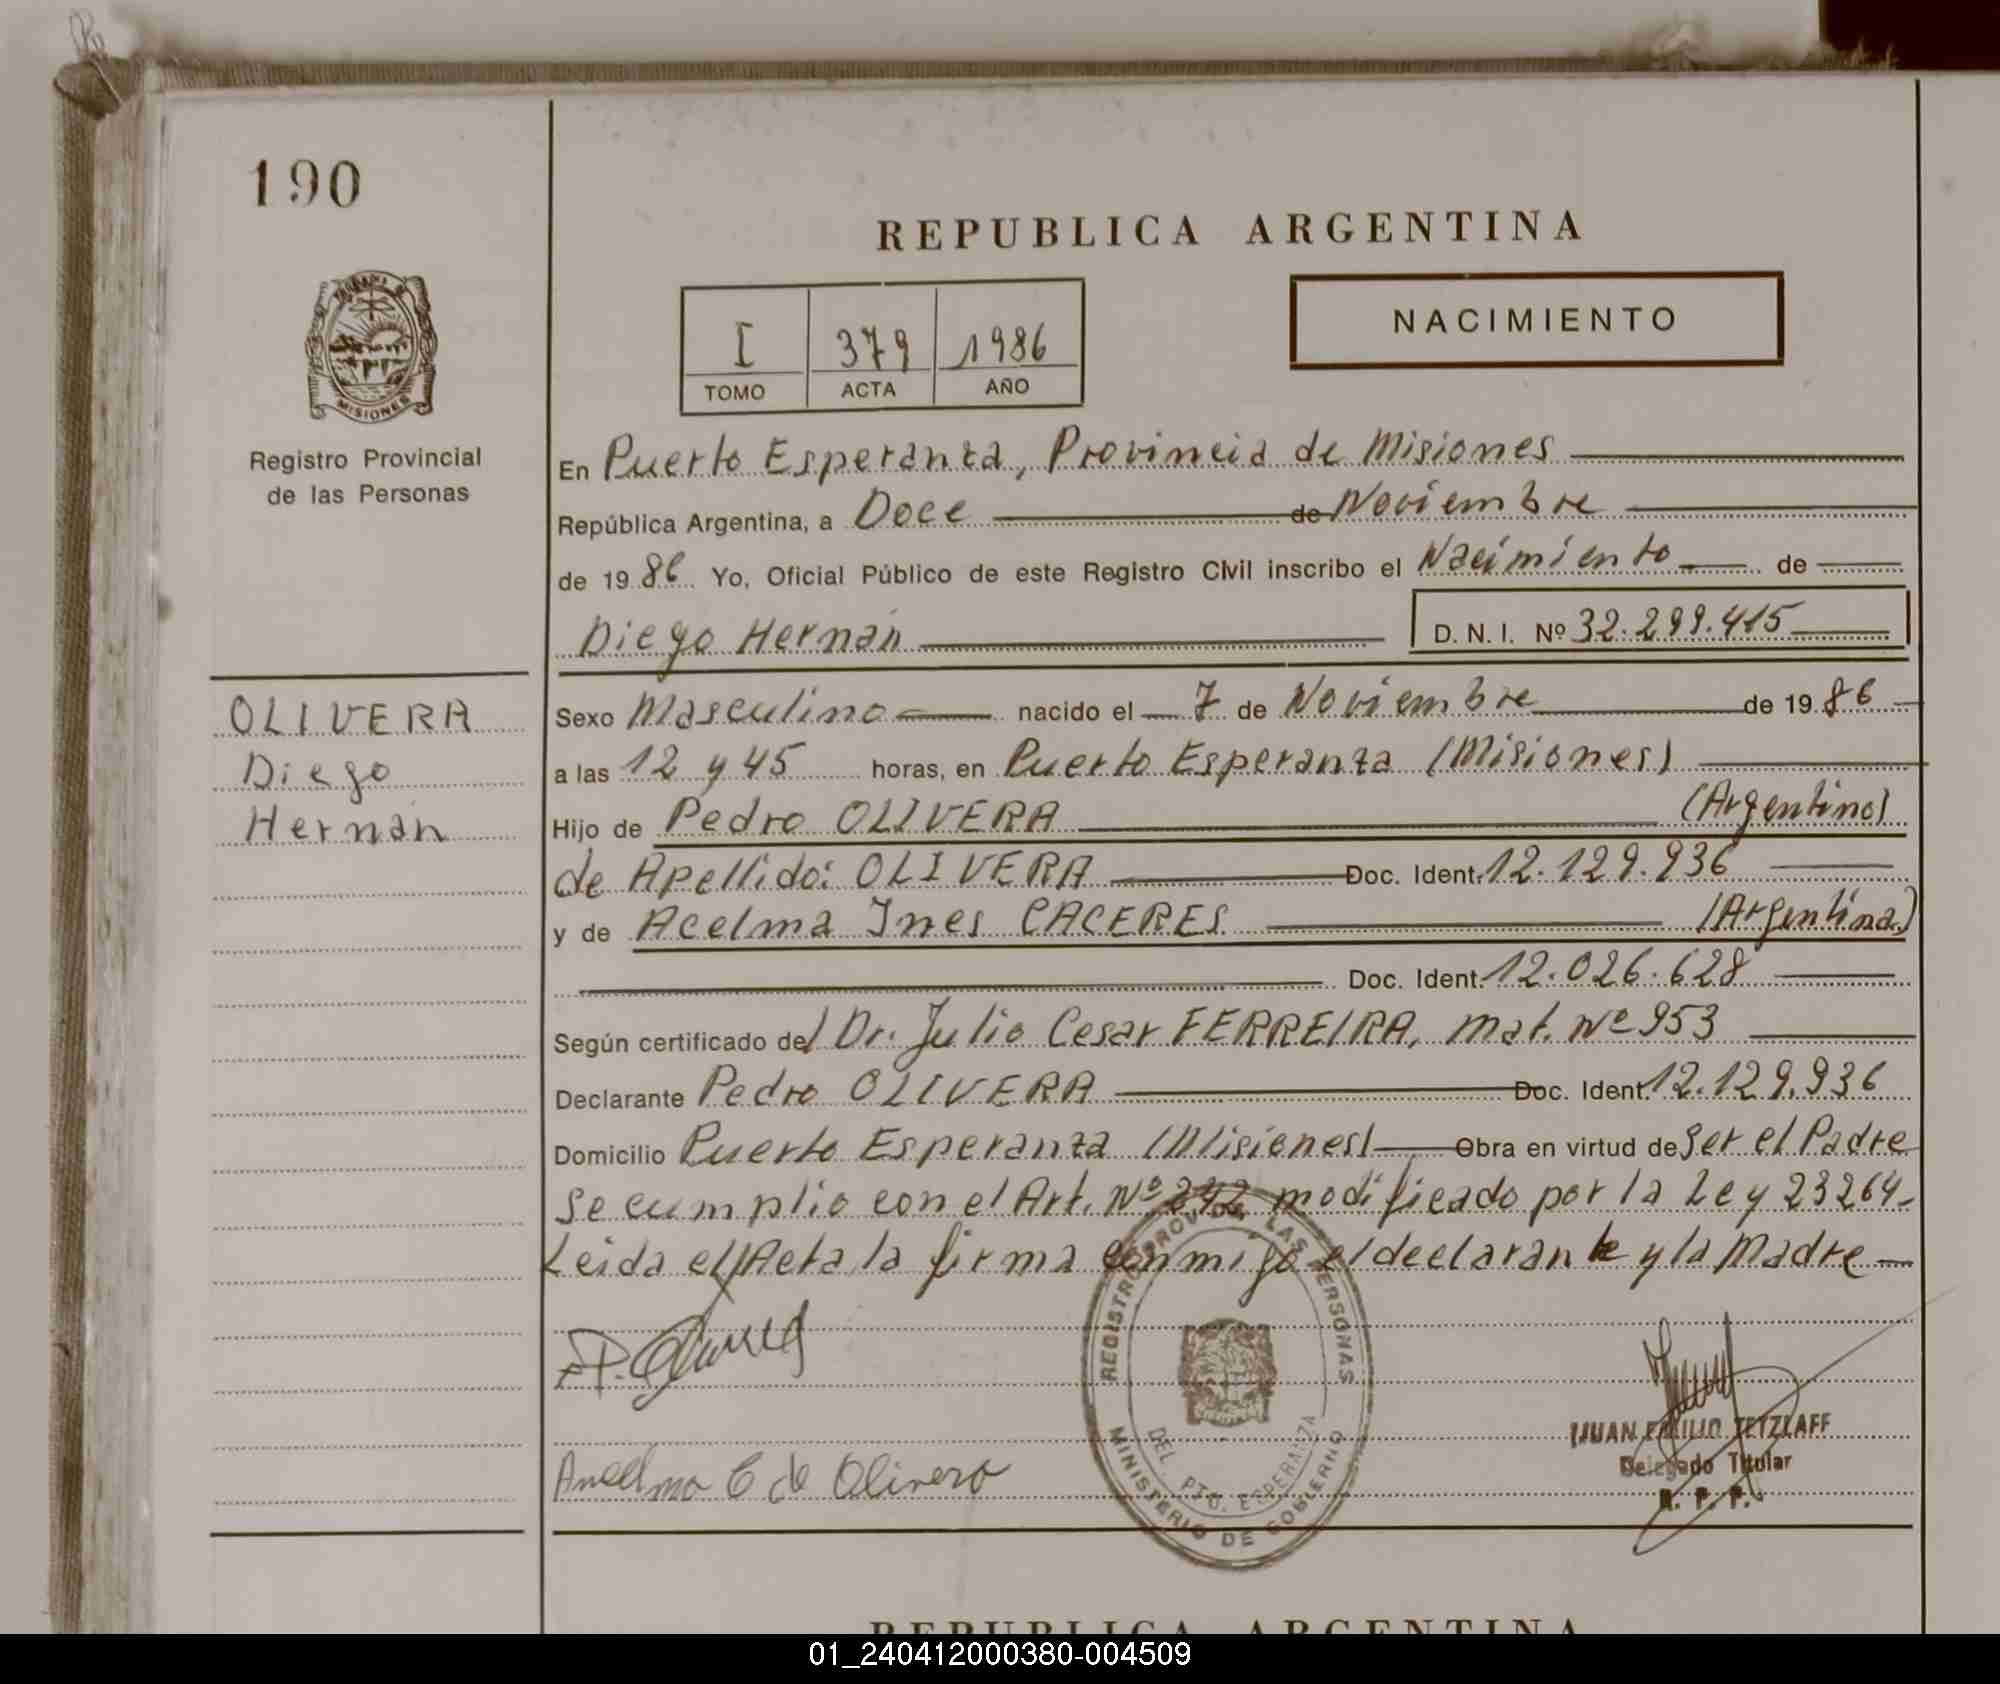 190
REPUBLICA ARGENTINA
I 379 1986
TOMO ACTA AÑO
NACIMIENTO
MISIONES
Registro Provincial
de las Personas
En Puerto Esperanza, Provincia de Misiones
República Argentina, a Doce de Noviembre
de 1986 Yo, Oficial Público de este Registro Civil inscribo el Nacimiento de
Diego Hernán D. N. I. Nº 32.299.415
OLIVERA
Diego
Hernán
Sexo Masculino nacido el 7 de Noviembre de 1986
a las 12 y 45 horas, en Puerto Esperanza (Misiones)
Hijo de Pedro OLIVERA (Argentino)
de Apellido: OLIVERA Doc. Ident. 12.129.936
y de Acelma Ines CACERES (Argentina)
Doc. Ident. 12.026.628
Según certificado del Dr. Julio Cesar FERREIRA, Mat. Nº 953
Declarante Pedro OLIVERA Doc. Ident. 12.129.936
Domicilio Puerto Esperanza (Misiones) Obra en virtud de Ser el Padre
Se cumplio con el Art. Nº 242 modificado por la Ley 23264-
Leida el Acta la firma conmigo el declarante y la Madre
REGISTRO PROV. DE LAS PERSONAS
DEL. PTO. ESPERANZA
MINISTERIO DE GOBIERNO
P. Olivera
JUAN EMILIO TETZLAFF
Delegado Titular
R. P. P.
Ancelma C de Olivera
REPUBLICA ARGENTINA
01_240412000380-004509